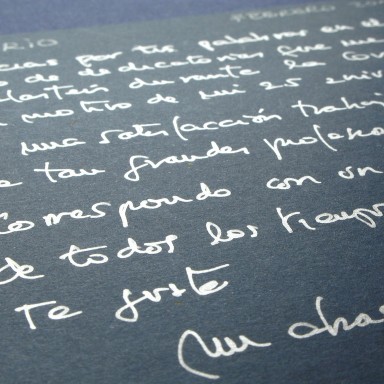 RIO FEBRERO
cias por tus palabras en el
de dedicatorias que me
durante la
motivo de mi 25 aniv
una satisfacción
tan grandes profesion
Correspondo con un
de todos los tiempo
Te guste